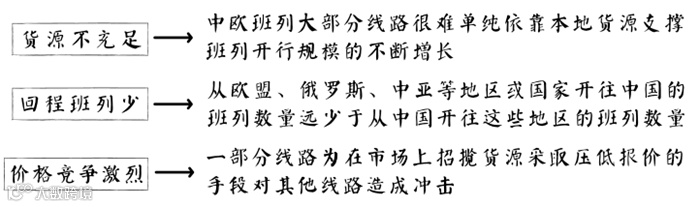 货源不充足
中欧班列大部分线路很难单纯依靠本地货源支撑
班列开行规模的不断增长
回程班列少
从欧盟、俄罗斯、中亚等地区或国家开往中国的
班列数量远少于从中国开往这些地区的班列数量
价格竞争激烈
一部分线路为在市场上招揽货源采取压低报价的
手段对其他线路造成冲击
大数跨境